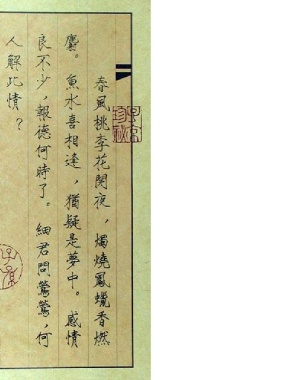 春風桃李花開夜，燭燒鳳蠟香燃
麝。魚水喜相逢，猶疑是夢中。感情
良不少，報德何時了。細君問鶯鶯，何
人解此情？